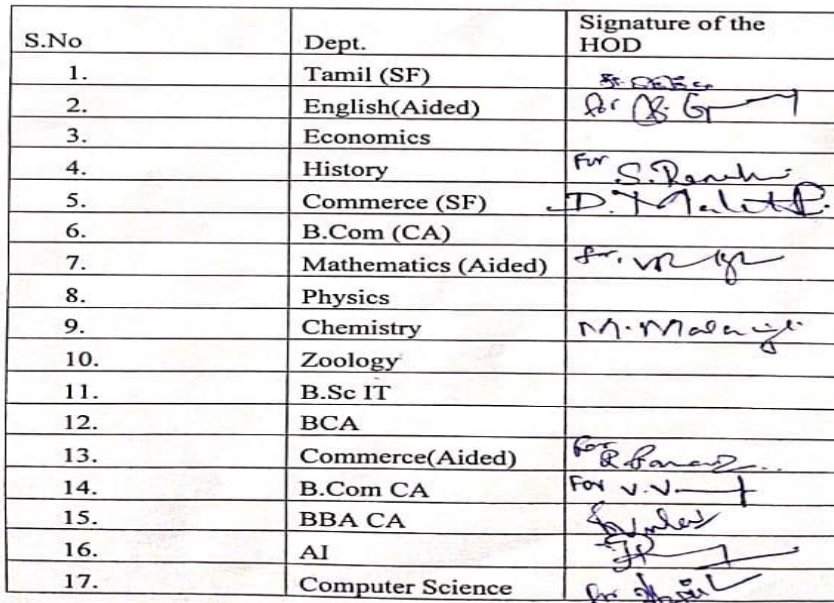 S.No Dept. Signature of the
HOD
1. Tamil (SF)
2. English(Aided) for
3. Economics
4. History For S.
5. Commerce (SF) D.
6. B.Com (CA)
7. Mathematics (Aided) for.
8. Physics
9. Chemistry M.
10. Zoology
11. B.Sc IT
12. BCA
13. Commerce(Aided) For
14. B.Com CA For V.V.
15. BBA CA
16. AI
17. Computer Science for